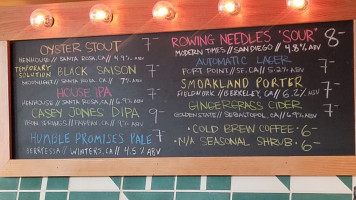 OYSTER STOUT 7-
HENHOUSE // SANTA ROSA, CA // 4.9% ABV
TEMPORARY SOLUTION BLACK SAISON 7-
MOONLIGHT // SANTA ROSA, CA // ABV
HOUSE IPA 7-
HENHOUSE // SANTA ROSA, CA // 6.7% ABV
CASEY JONES DIPA 9-
ABV
HUMBLE PROMISES PALE 7-
BERRYESSA // WINTERS, CA // 4.5% ABV
ROWING NEEDLES "SOUR" 8-
MODERN TIMES // SAN DIEGO // 4.8% ABV
AUTOMATIC LAGER 7-
FORT POINT // SF, CA // 5.2% ABV
SMOAKLAND PORTER 7-
FIELDWORK // BERKELEY, CA // 6.2% ABV
GINGERGRASS CIDER 7-
GOLDEN STATE // SEBASTOPOL, CA // 6.9% ABV
•COLD BREW COFFEE• 6-
•N/A SEASONAL SHRUB• 6-